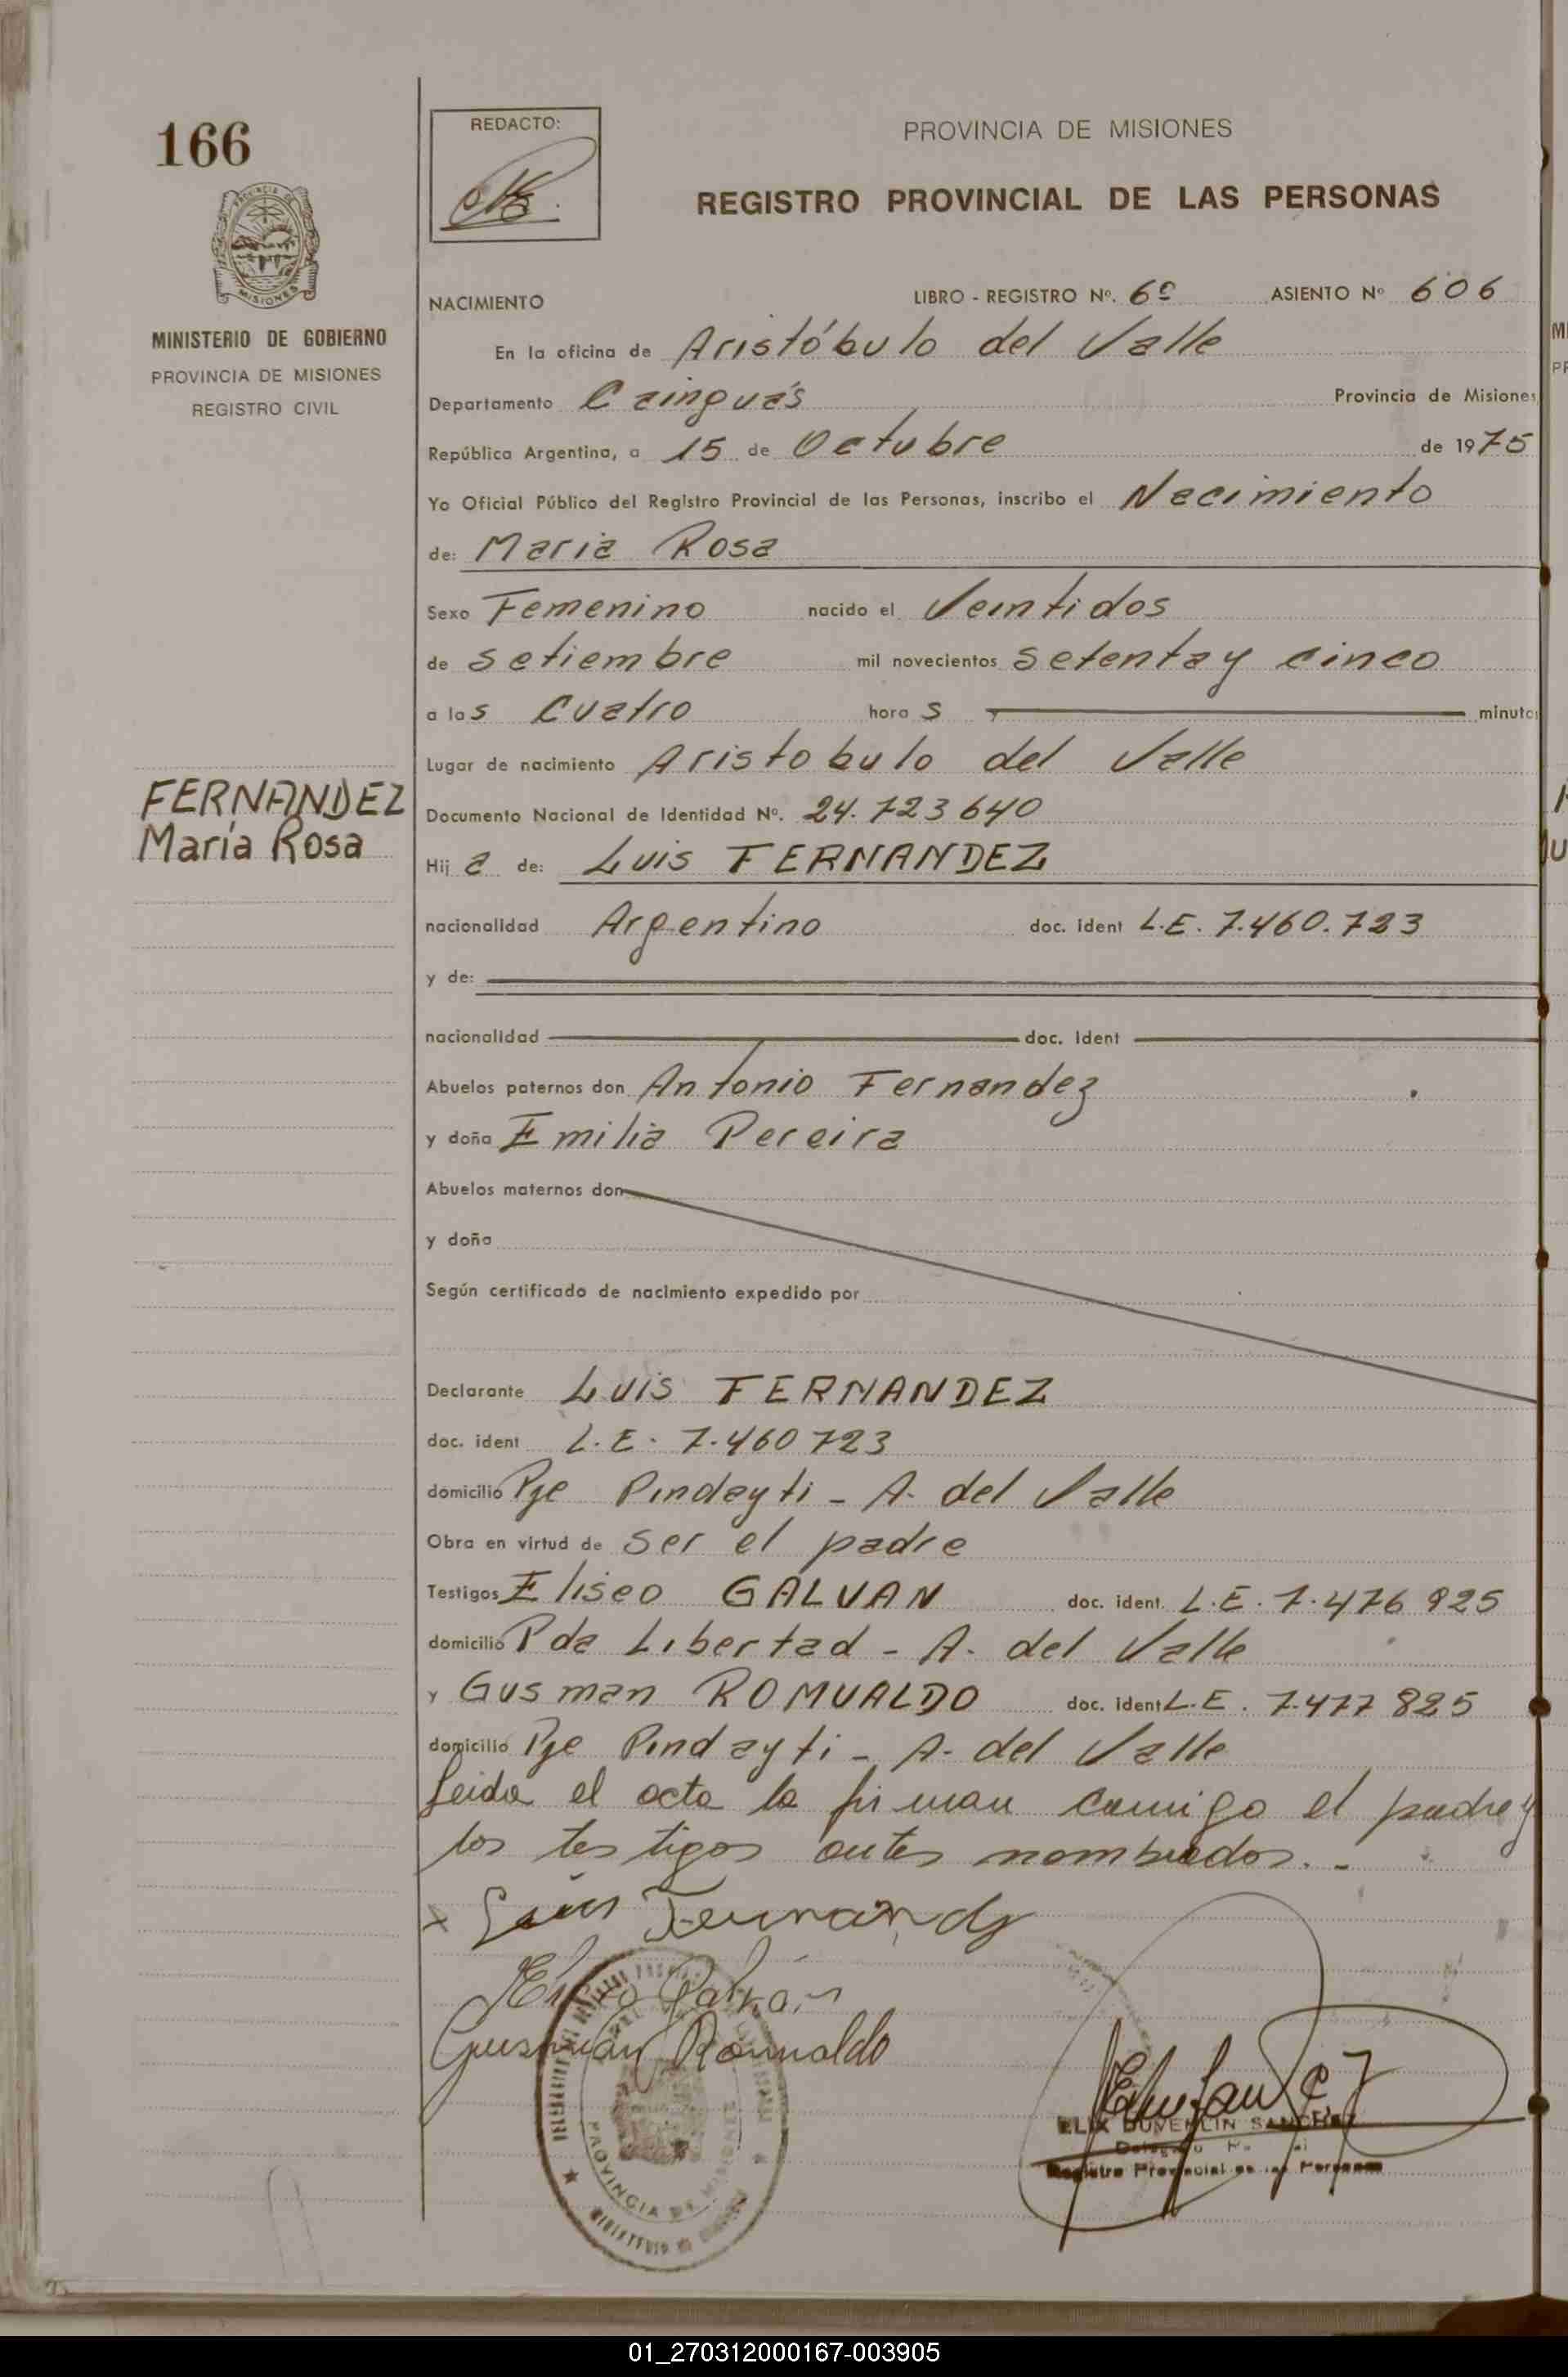 166
REDACTO:
PROVINCIA DE MISIONES
REGISTRO PROVINCIAL DE LAS PERSONAS
MISIONES
MINISTERIO DE GOBIERNO
PROVINCIA DE MISIONES
REGISTRO CIVIL
NACIMIENTO LIBRO - REGISTRO Nº. 6º ASIENTO Nº 606
En la oficina de Aristóbulo del Valle
Departamento Cainguás Provincia de Misiones
República Argentina, a 15 de Octubre de 1975
Yo Oficial Público del Registro Provincial de las Personas, inscribo el Nacimiento
de: Maria Rosa
Sexo Femenino nacido el Veintidos
de Setiembre mil novecientos Setenta y cinco
a las Cuatro horas minuto
Lugar de nacimiento Aristobulo del Valle
FERNANDEZ
María Rosa
Documento Nacional de Identidad Nº. 24.723640
Hija de: Luis FERNANDEZ
nacionalidad Argentino doc. ident L.E. 7.460.723
y de:
nacionalidad doc. ident
Abuelos paternos don Antonio Fernandez
y doña Emilia Pereira
Abuelos maternos don
y doña
Según certificado de nacimiento expedido por
Declarante Luis FERNANDEZ
doc. ident L.E. 7.460723
domicilio Pje Pindayti - A. del Valle
Obra en virtud de ser el padre
Testigos Eliseo GALVAN doc. ident. L.E. 7.476 925
domicilio Pda Libertad - A. del Valle
y Gusman ROMUALDO doc. ident L.E. 7.477 825
domicilio Pje Pindayti - A. del Valle
Leida el acta la firman conmigo el padre y
los testigos antes nombrados. -
x Luis Fernandez
Eliseo Galván
Gusman Romualdo
PROVINCIA DE MISIONES
Registro Provincial de las Personas
01_270312000167-003905